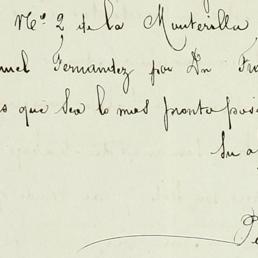 Nº 2 de la Monterilla
uel Fernandez por Dn Fra
s que sea lo mas pronto pos
su a
Pe